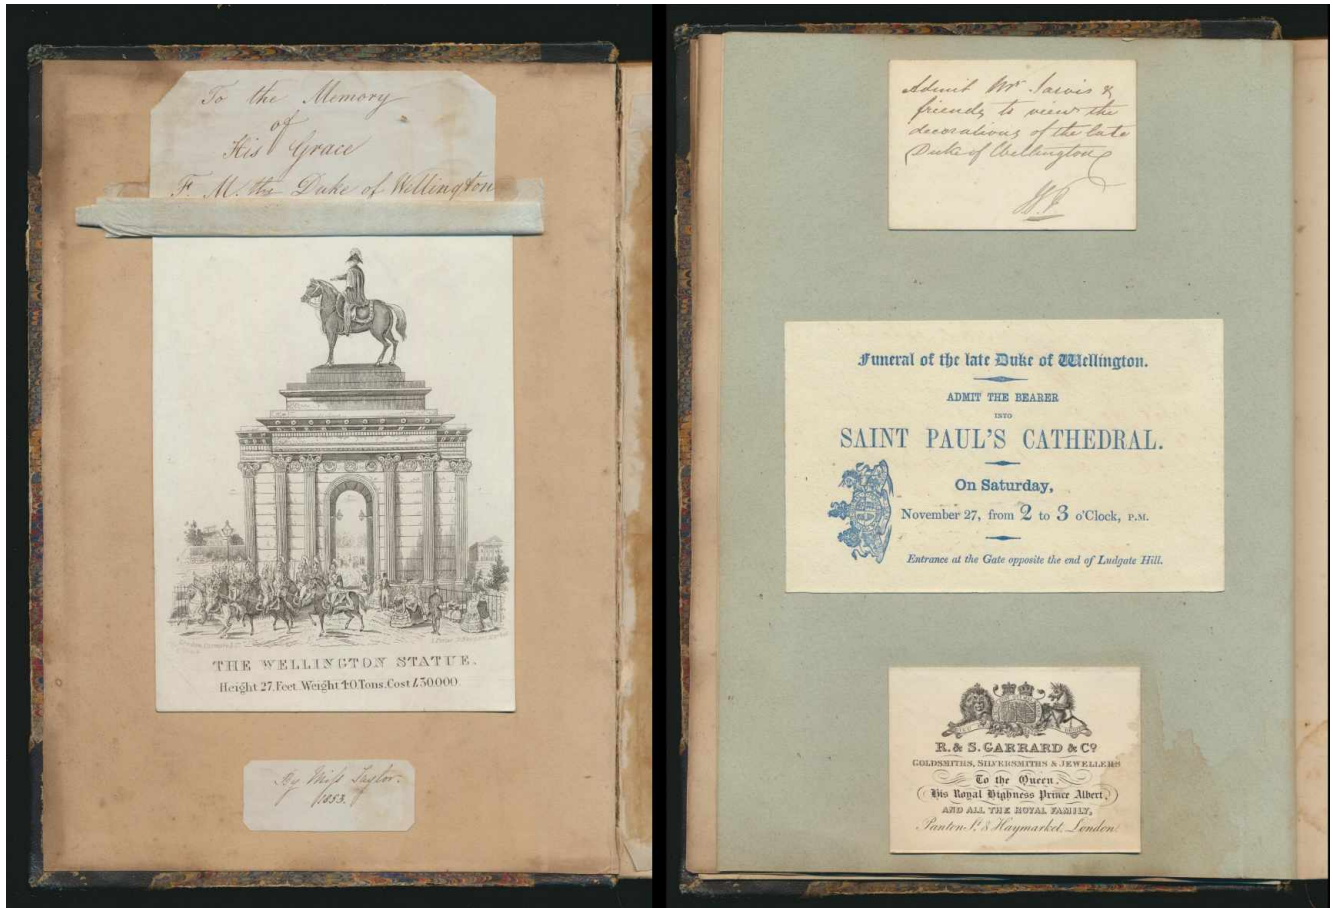 To the Memory
of
His Grace
F. M. the Duke of Wellington
THE WELLINGTON STATUE.
Height 27. Feet. Weight 40 Tons. Cost £30,000
By Miss Taylor.
1853.
Admit Mr Jarvis &
friends to view the
decorations of the late
Duke of Wellington
Funeral of the late Duke of Wellington.
ADMIT THE BEARER
INTO
SAINT PAUL'S CATHEDRAL.
On Saturday,
November 27, from 2 to 3 o'Clock, P.M.
Entrance at the Gate opposite the end of Ludgate Hill.
R. & S. GARRARD & Co.
GOLDSMITHS, SILVERSMITHS & JEWELLERS
To the Queen,
His Royal Highness Prince Albert,
AND ALL THE ROYAL FAMILY,
Panton St. & Haymarket, London.